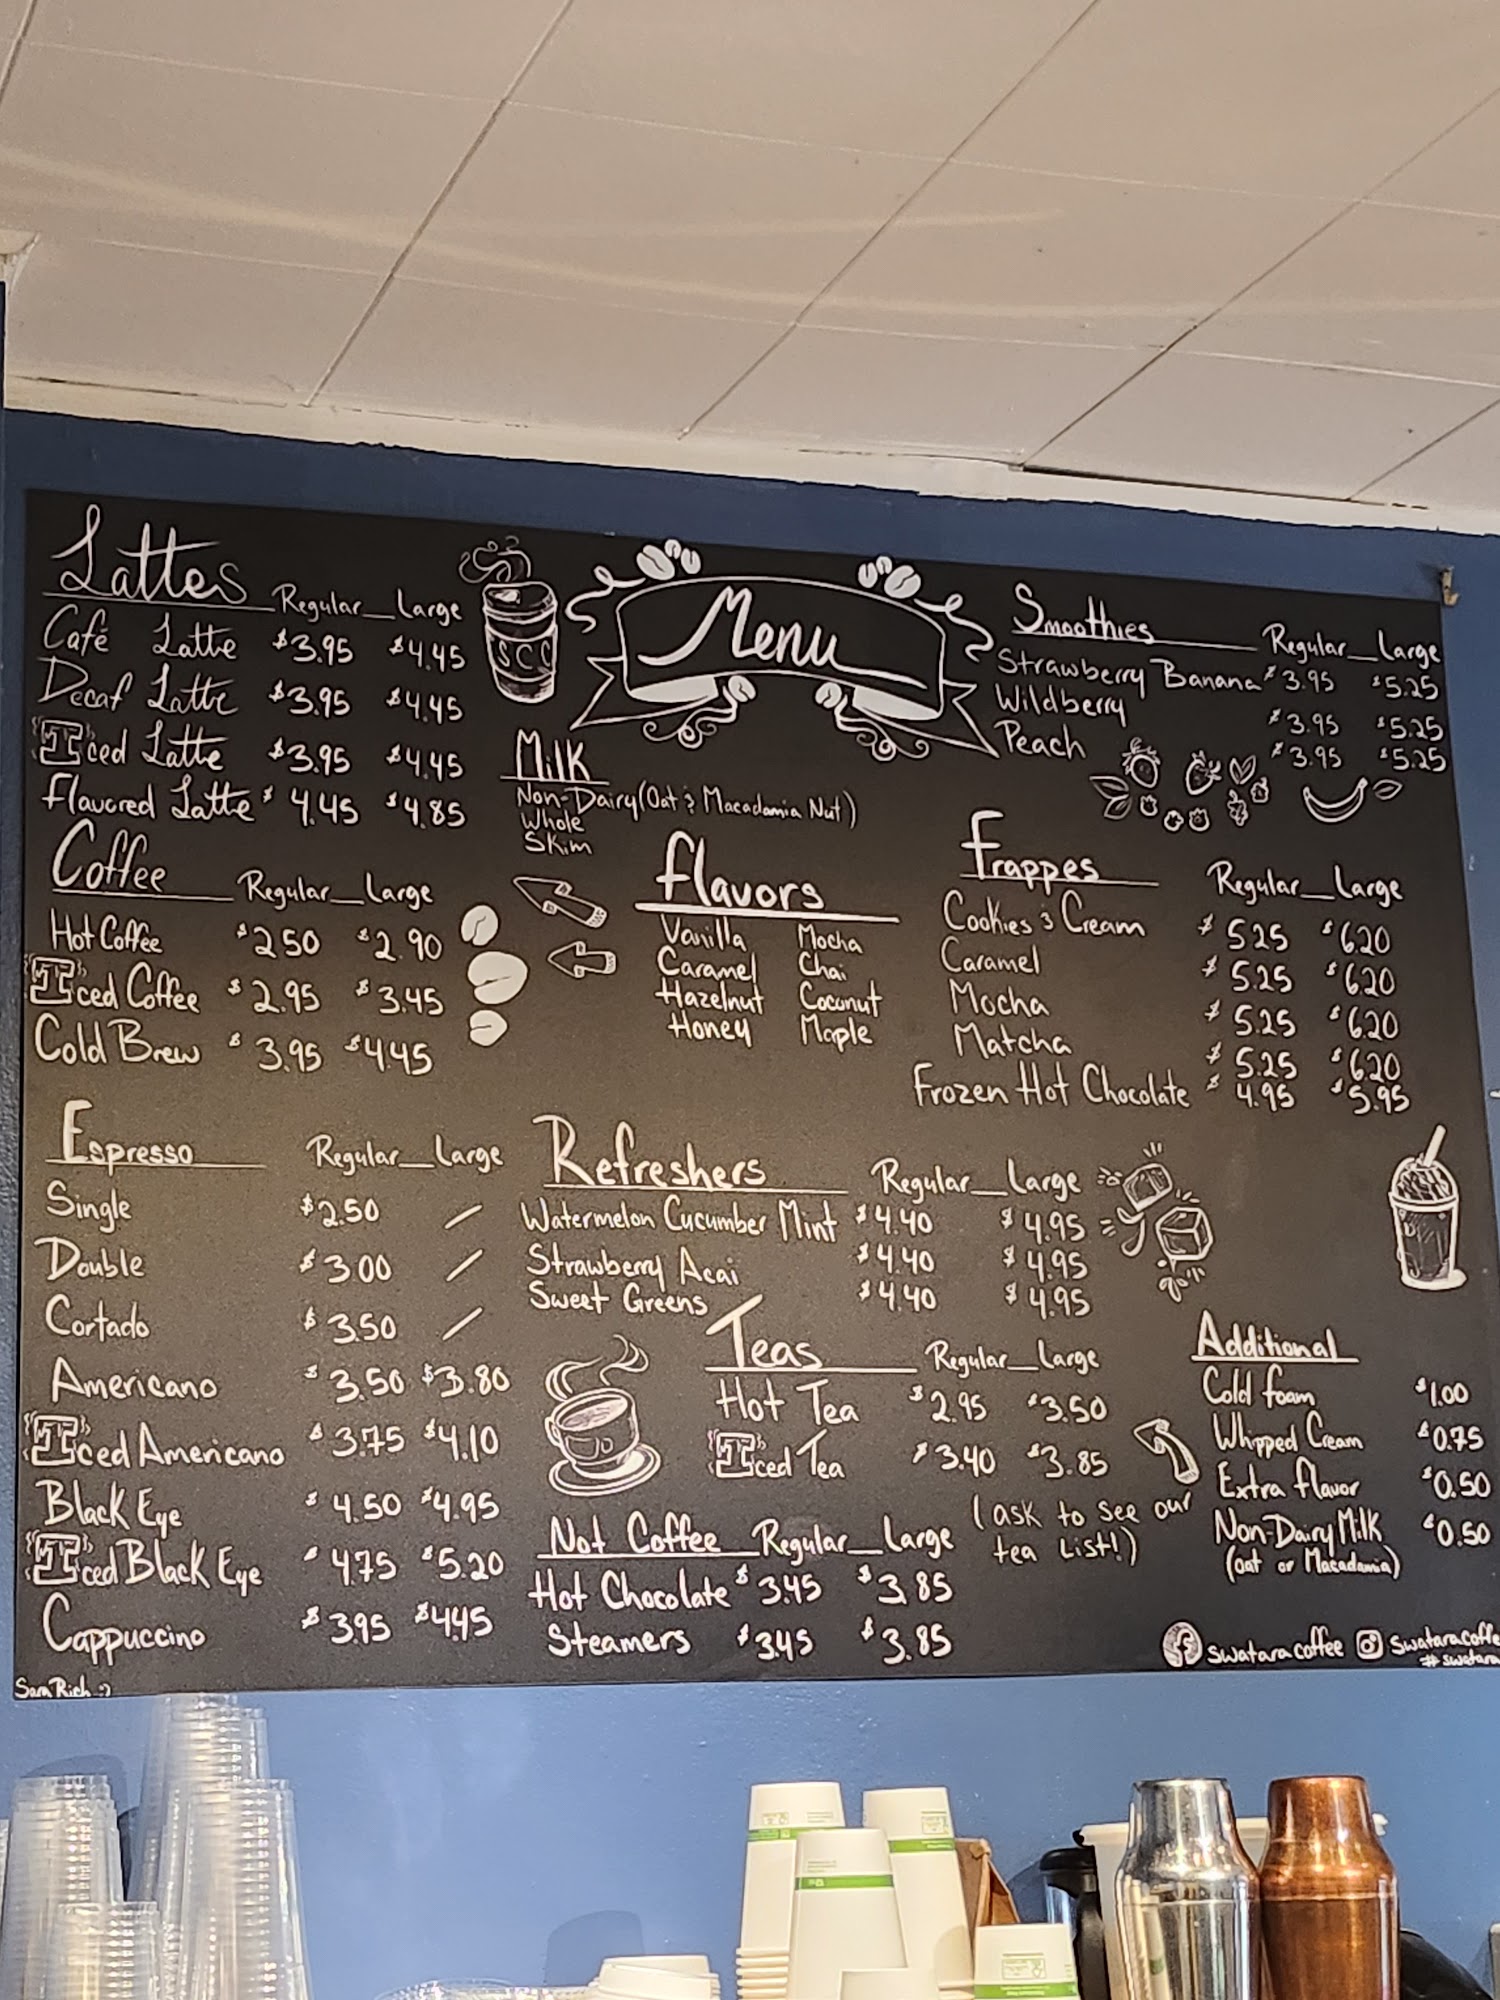 Menu
Lattes Regular Large
Café Latte $3.95 $4.45
Decaf Latte $3.95 $4.45
Iced Latte $3.95 $4.45
Flavored Latte $4.45 $4.85
SCC
Coffee Regular Large
Hot Coffee $2.50 $2.90
Iced Coffee $2.95 $3.45
Cold Brew $3.95 $4.45
Espresso Regular Large
Single $2.50 /
Double $3.00 /
Cortado $3.50 /
Americano $3.50 $3.80
Iced Americano $3.75 $4.10
Black Eye $4.50 $4.95
Iced Black Eye $4.75 $5.20
Cappuccino $3.95 $4.45
Sara Rich :)
Milk
Non-Dairy (Oat & Macadamia Nut)
Whole
Skim
Flavors
Vanilla Mocha
Caramel Chai
Hazelnut Coconut
Honey Maple
Refreshers Regular Large
Watermelon Cucumber Mint $4.40 $4.95
Strawberry Acai $4.40 $4.95
Sweet Greens $4.40 $4.95
Teas Regular Large
Hot Tea $2.95 $3.50
Iced Tea $3.40 $3.85
(ask to see our
tea list!)
Not Coffee Regular Large
Hot Chocolate $3.45 $3.85
Steamers $3.45 $3.85
Smoothies Regular Large
Strawberry Banana $3.95 $5.25
Wildberry $3.95 $5.25
Peach $3.95 $5.25
Frappes Regular Large
Cookies & Cream $5.25 $6.20
Caramel $5.25 $6.20
Mocha $5.25 $6.20
Matcha $5.25 $6.20
Frozen Hot Chocolate $4.95 $5.95
Additional
Cold foam $1.00
Whipped Cream $0.75
Extra flavor $0.50
Non-Dairy Milk $0.50
(oat or Macadamia)
swatara coffee swatara coffe
#swatara